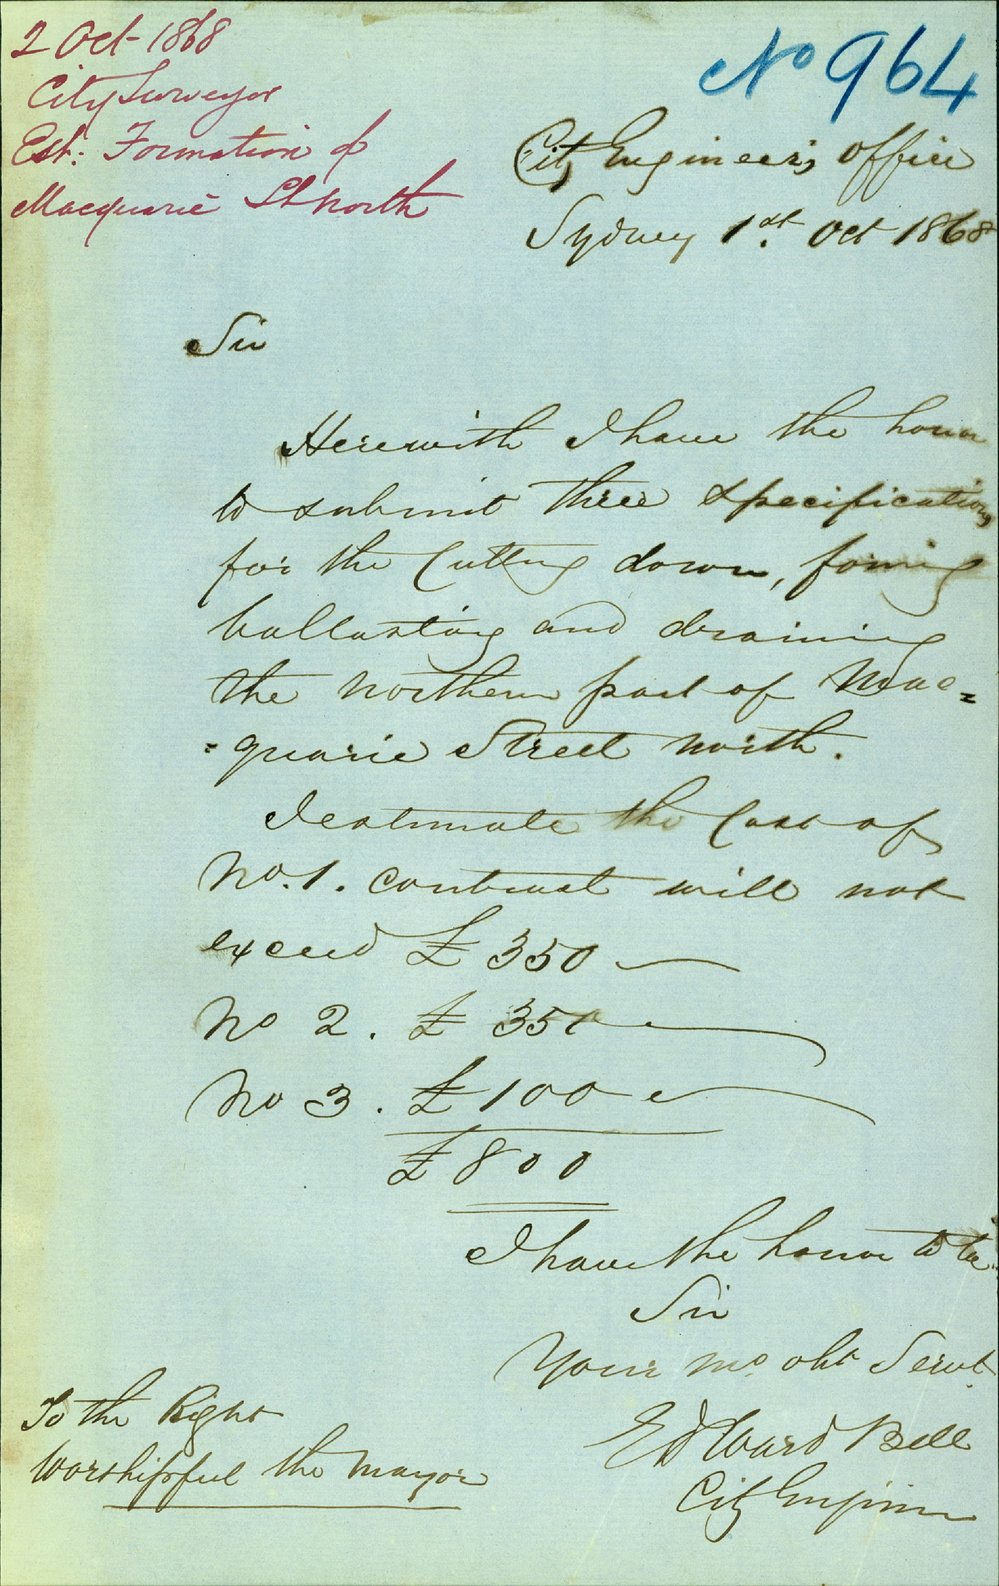 2 Oct 1868
City Surveyor
Est: Formation of
Macquarie St North
No 964
City Engineer's Office
Sydney 1st. Oct 1868
Sir
Herewith I have the honor
to submit three specifications
for the Cutting down, forming
ballasting and draining
the northern part of Mac=
=quarie Street North.
I estimate the Cost of
No. 1. contract will not
exceed £350
No 2. £350
No 3. £100
£800
I have the honor to be
Sir
Your mo. obt Servt
Edward Bell
City Engineer
To the Right
Worshipful the Mayor